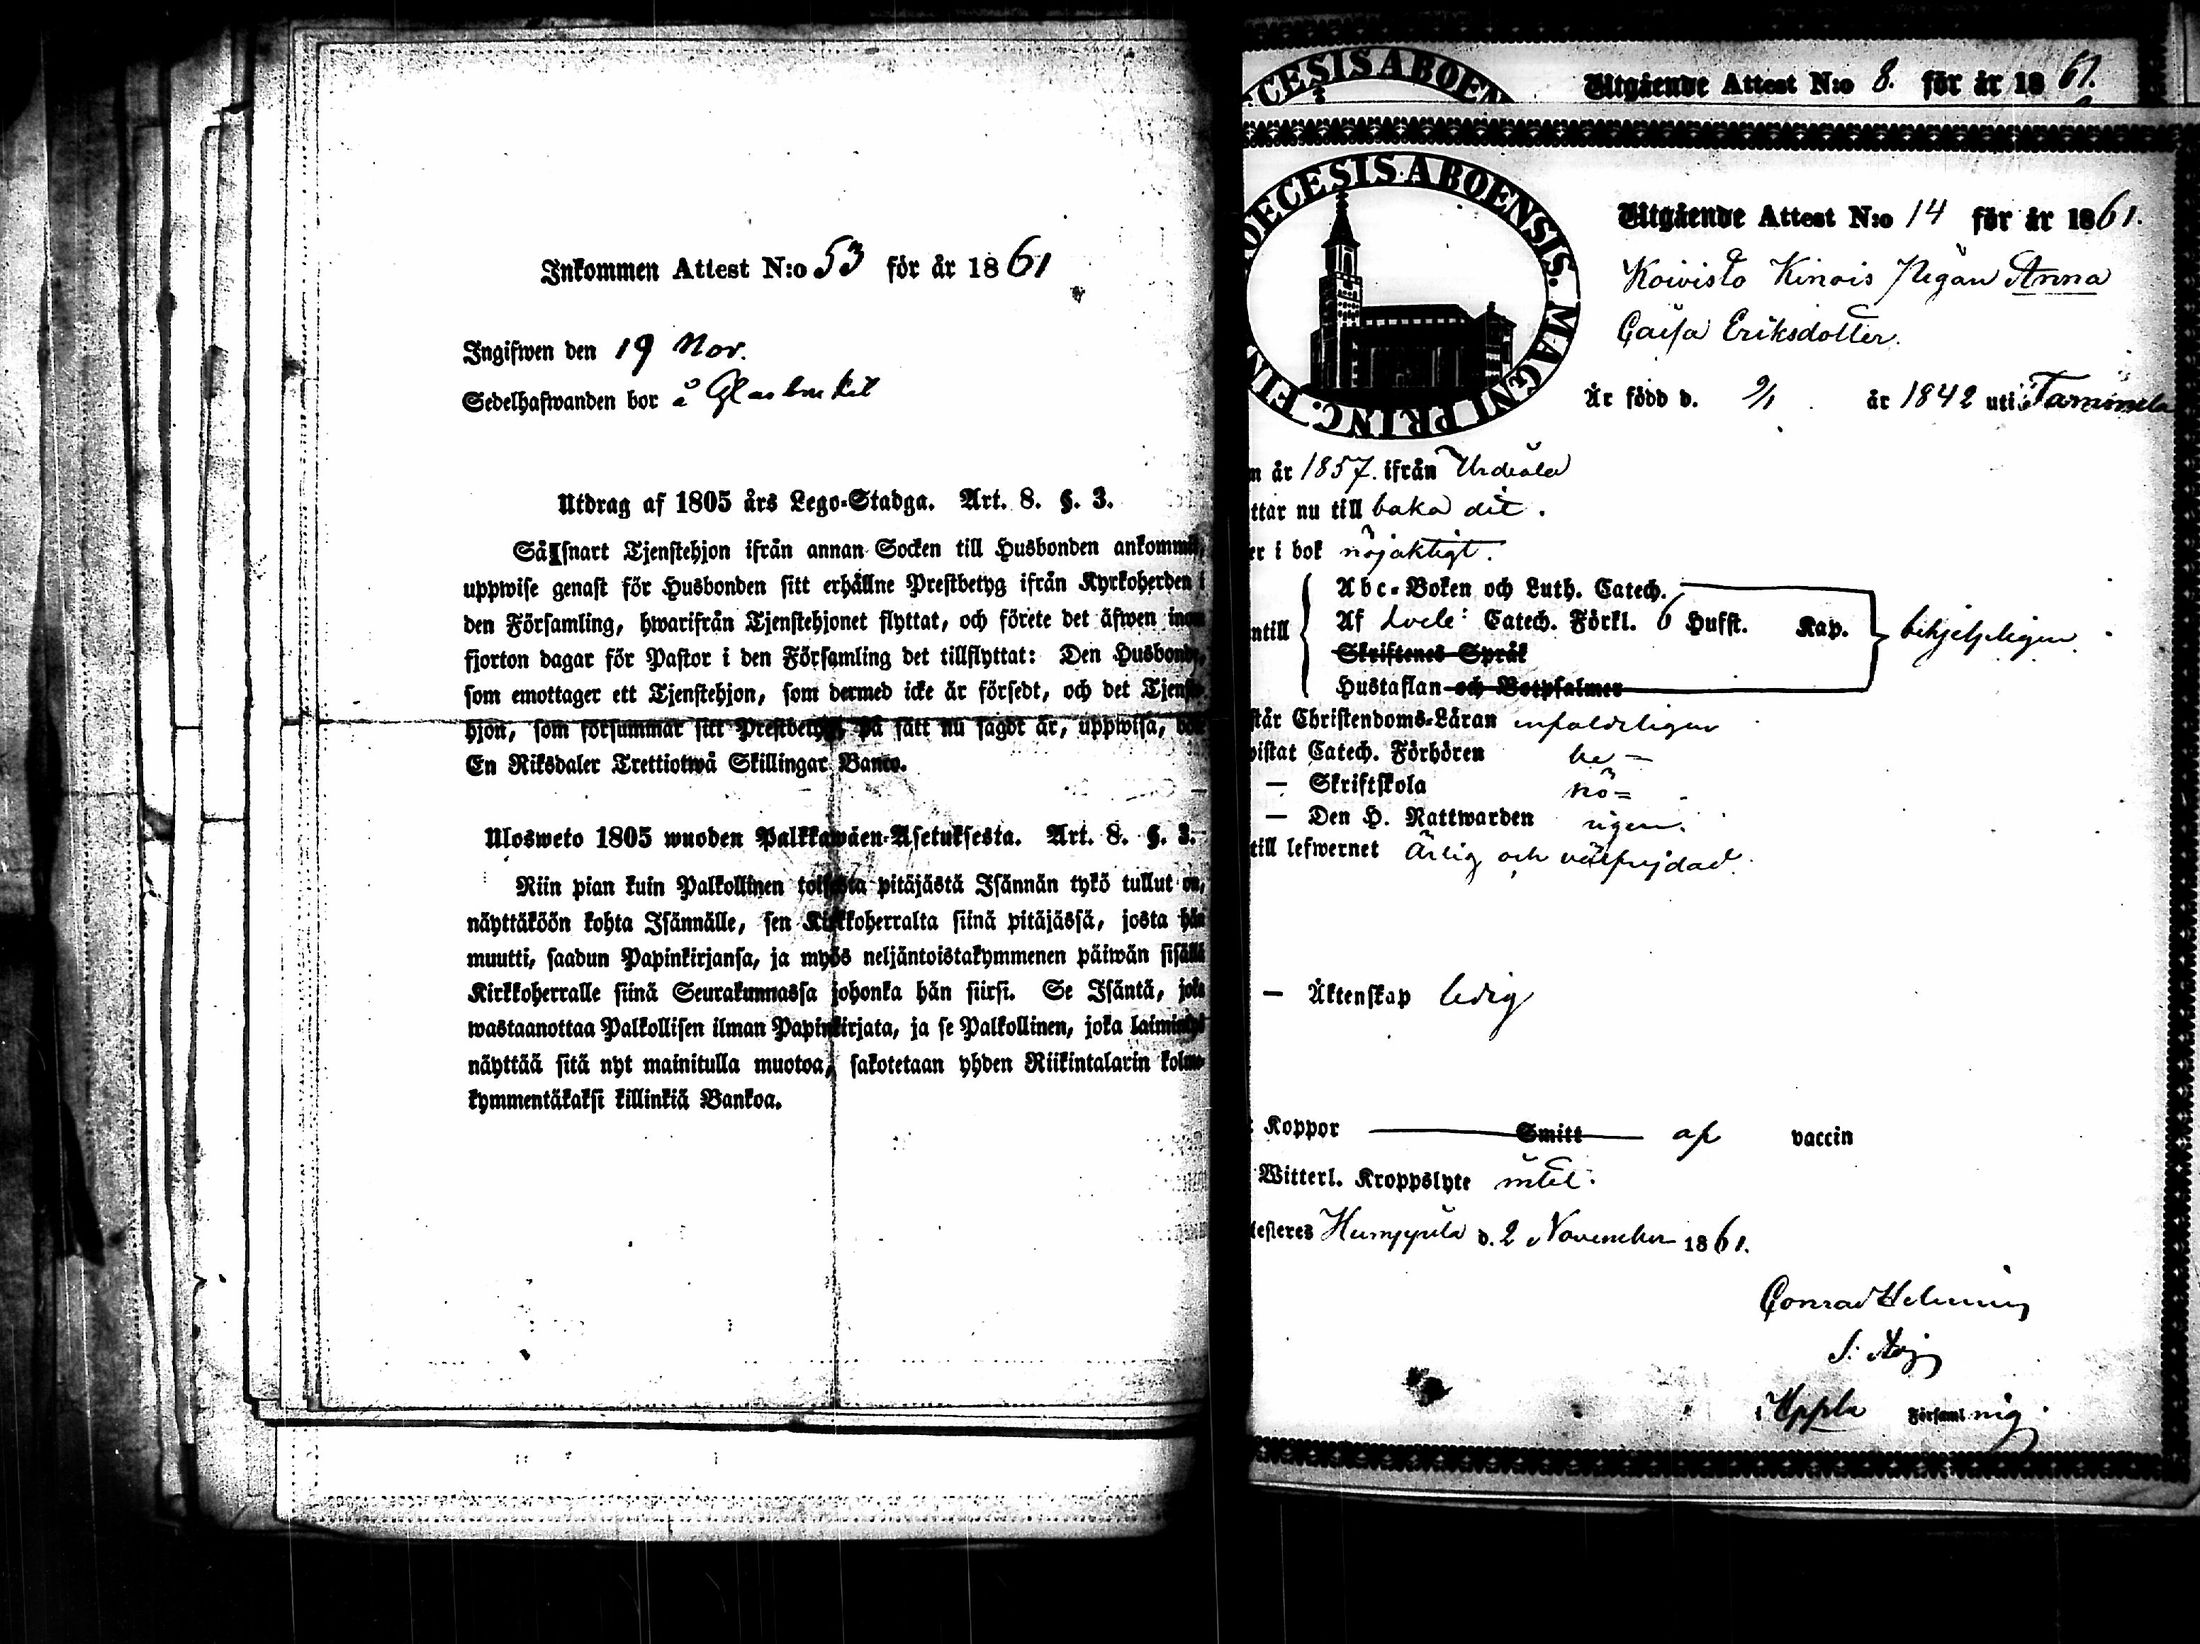 Inkommen Attest N:o 53 för år 1861
Ingifwen den 19 Nov.
Sedelhafwanden bor å Glasbruket
Utdrag af 1805 års Lego-Stadga. Art. 8. §. 3.
Så snart Tjenstehjon ifrån annan Socken till Husbonden ankommit,
uppwise genast för Husbonden sitt erhållne Prestbetyg ifrån Kyrkoherden i
den Församling, hwarifrån Tjenstehjonet flyttat, och förete det äfwen inom
fjorton dagar för Pastor i den Församling det tillflyttat: Den Husbonde,
som emottager ett Tjenstehjon, som dermed icke är försedt, och det Tjenste-
hjon, som försummar sitt Prestbetyg, på sätt nu sagdt är, uppwisa, böte
En Riksdaler Trettiotwå Skillingar Banco.
Ulosweto 1805 wuoden Palkkawäen-Asetuksesta. Art. 8. §. 3.
Niin pian kuin Palkollinen toisesta pitäjästä Isännän tykö tullut on,
näyttäköön kohta Isännälle, sen Kirkkoherralta siinä pitäjässä, josta hän
muutti, saadun Papinkirjansa, ja myös neljäntoistakymmenen päiwän sisällä
Kirkkoherralle siinä Seurakunnassa johonka hän siirsi. Se Isäntä, joka
wastaanottaa Palkollisen ilman Papinkirjata, ja se Palkollinen, joka laiminlyö
näyttää sitä nyt mainitulla muotoa, sakotetaan yhden Riikintalarin kolme-
kymmentäkaksi killinkiä Bankoa.
ECESIS ABOEN
Utgående Attest N:o 8. för år 1861.
OECESIS ABOENSIS. MAGNI PRINC. FIN
Utgående Attest N:o 14 för år 1861.
Koivisto Kinois Pigan Anna
Caisa Eriksdotter.
Är född d. 9/1 år 1842 uti Tammela
m år 1857. ifrån Urdiala
ttar nu till baka dit.
er i bok nöjaktigt.
Abc-Boken och Luth. Catech.
ntill Af Sveb: Catech. Förkl. 6 Hufst. Kap. behjelpligen
Skriftenes Språk
Hustaflan och Botpsalmer
står Christendoms-Läran enfaldeligen
vistat Catech. Förhören be-
— Skriftskola hö=
— Den H. Nattwarden rigen.
till lefwernet Ärlig och välfrejdad.
— Äktenskap ledig
Koppor Smitt af vaccin
Witterl. Kroppslyte intet.
testeres Humppila d. 2 November 1861.
Conrad Helenius
i Hppla Församl ning.